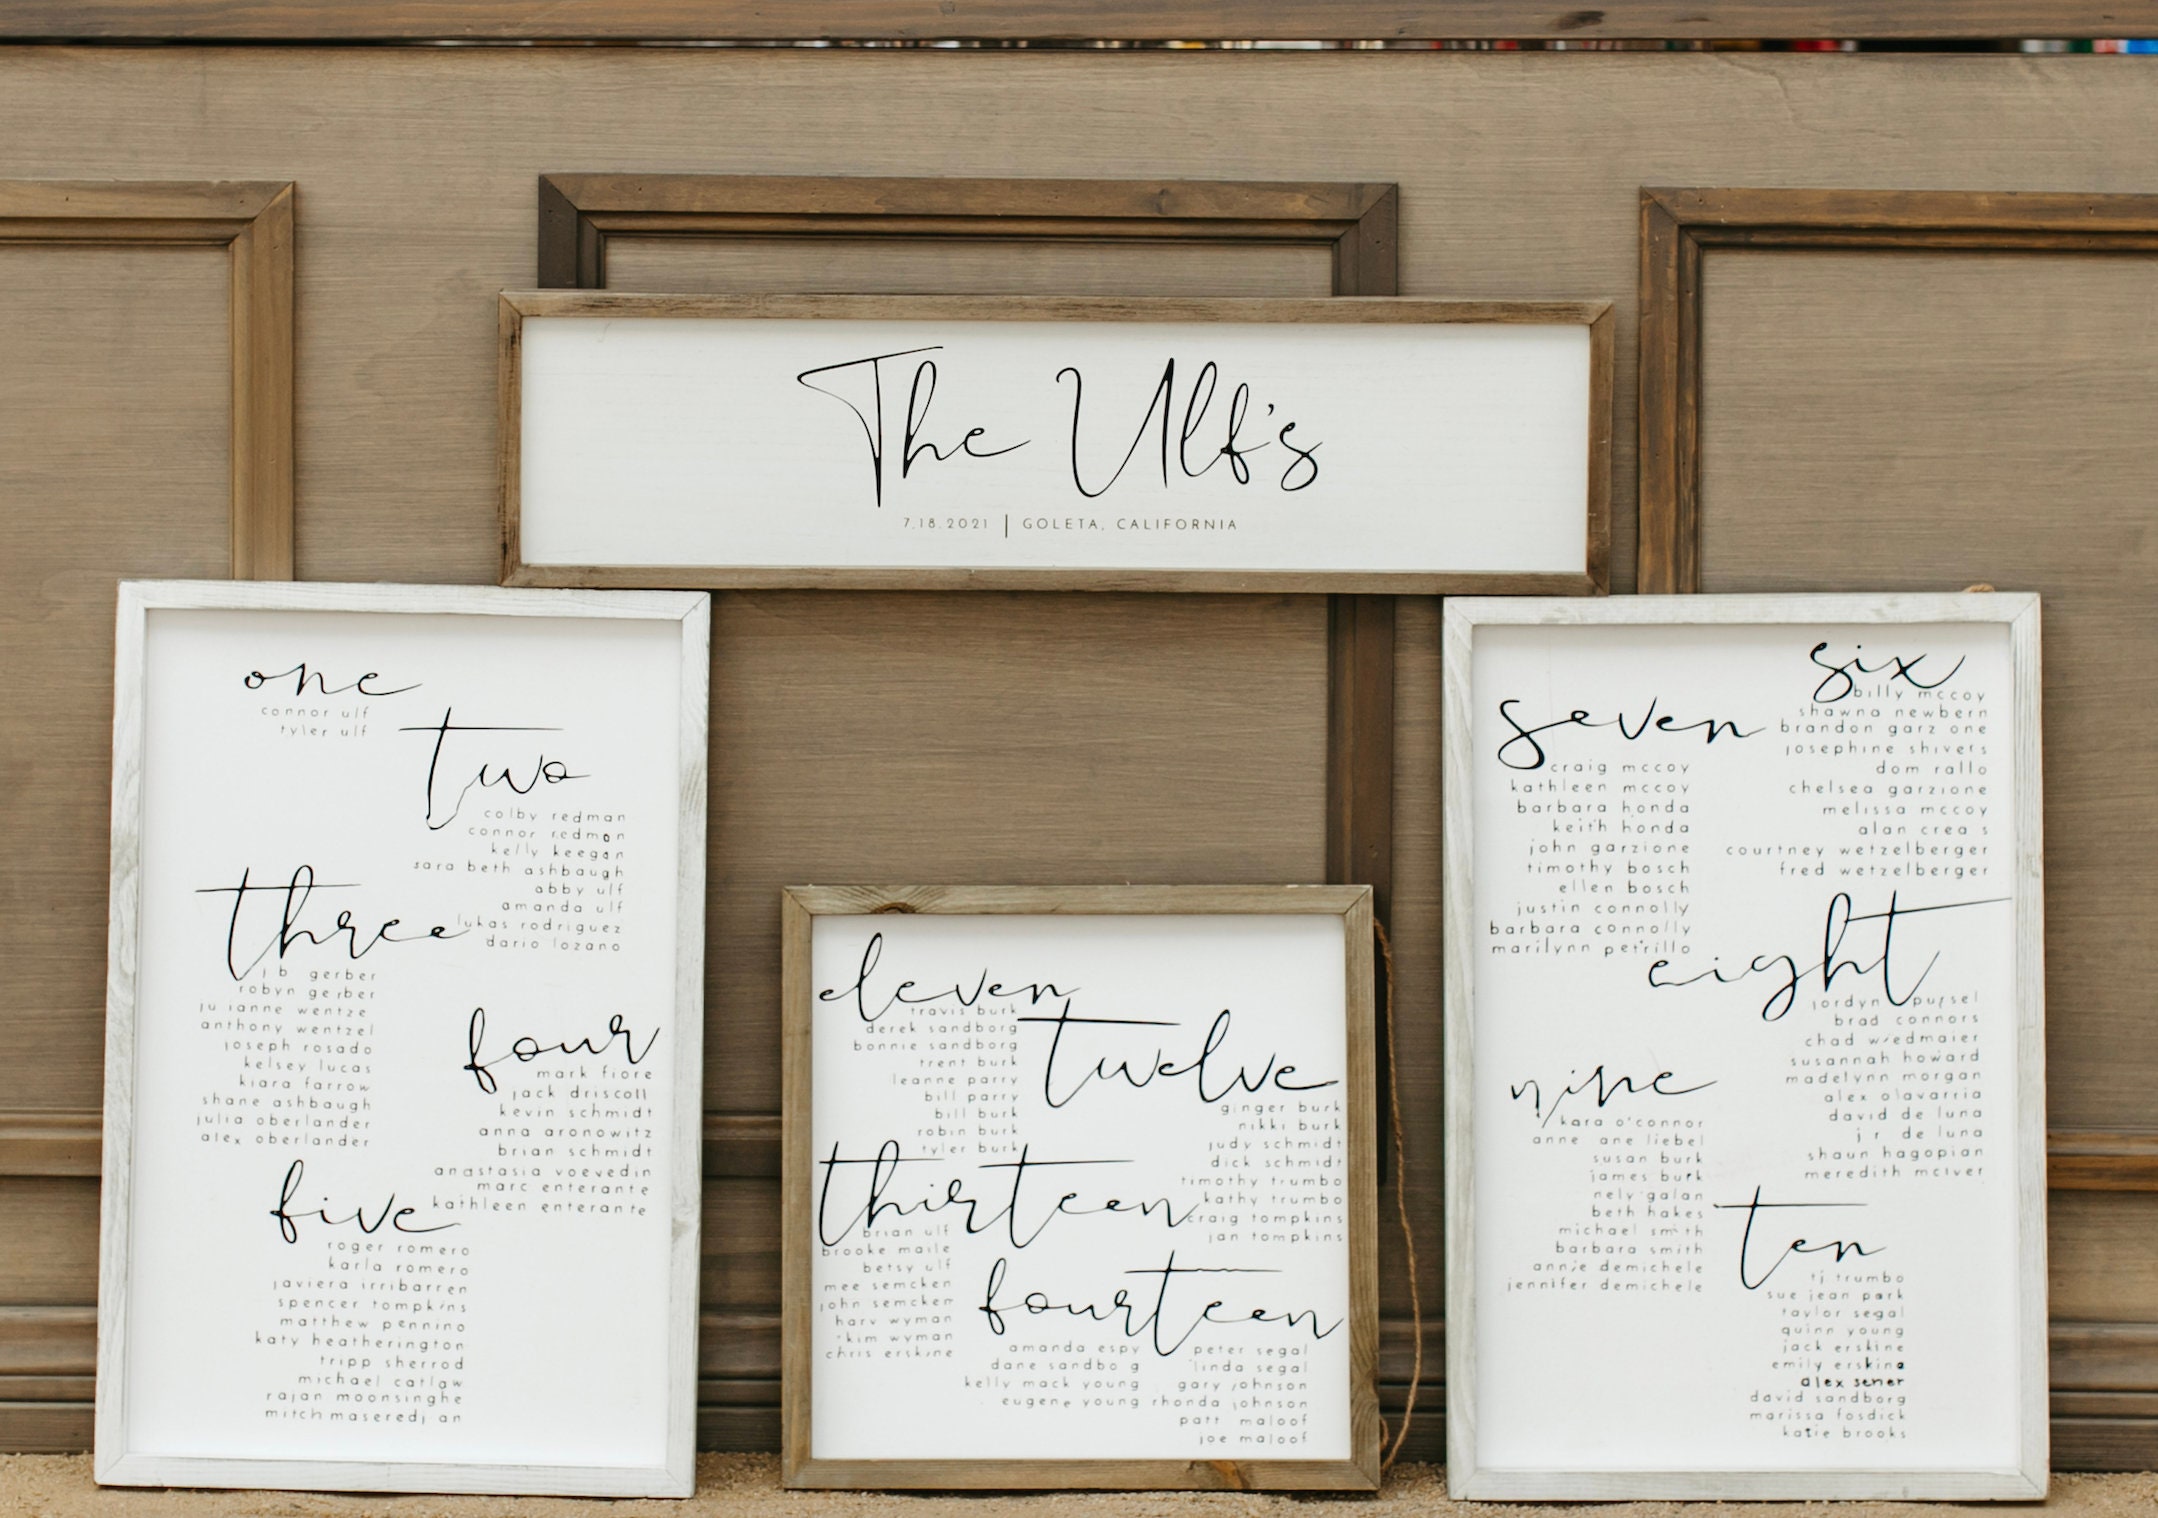 The Ulf's
7.18.2021 | GOLETA, CALIFORNIA
one
connor ulf
tyler ulf
two
colby redman
connor redman
kelly keegan
sara beth ashbaugh
abby ulf
amanda ulf
lukas rodriguez
dario lozano
three
jb gerber
robyn gerber
ju ianne wentze
anthony wentzel
joseph rosado
kelsey lucas
kiara farrow
shane ashbaugh
julia oberlander
alex oberlander
four
mark fiore
jack driscoll
kevin schmidt
anna aronowitz
brian schmidt
anastasia voevedin
marc enterante
kathleen enterante
five
roger romero
karla romero
javiera irribarren
spencer tompkins
matthew pennino
katy heatherington
tripp sherrod
michael catlaw
rajan moonsinghe
mitch maseredj an
eleven
travis burk
derek sandborg
bonnie sandborg
trent burk
leanne parry
bill parry
bill burk
robin burk
tyler burk
twelve
ginger burk
nikki burk
judy schmidt
dick schmidt
timothy trumbo
kathy trumbo
craig tompkins
jan tompkins
thirteen
brian ulf
brooke maile
betsy ulf
mee semcken
john semcken
harv wyman
kim wyman
chris erskine
fourteen
amanda espy
dane sandbo g
kelly mack young
eugene young
peter segal
linda segal
gary johnson
rhonda johnson
patt maloof
joe maloof
six
billy mccoy
shawna newbern
brandon garz one
josephine shivers
dom rallo
chelsea garzione
melissa mccoy
alan crea s
courtney wetzelberger
fred wetzelberger
seven
craig mccoy
kathleen mccoy
barbara honda
keith honda
john garzione
timothy bosch
ellen bosch
justin connolly
barbara connolly
marilynn petrillo
eight
jordyn pursel
brad connors
chad wiedmaier
susannah howard
madelynn morgan
alex olavarria
david de luna
jr de luna
shaun hagopian
meredith mciver
nine
kara o'connor
anne ane liebel
susan burk
james burk
nely galan
beth hakes
michael smith
barbara smith
annie demichele
jennifer demichele
ten
tj trumbo
sue jean park
taylor segal
quinn young
jack erskine
emily erskine
alex sener
david sandborg
marissa fosdick
katie brooks